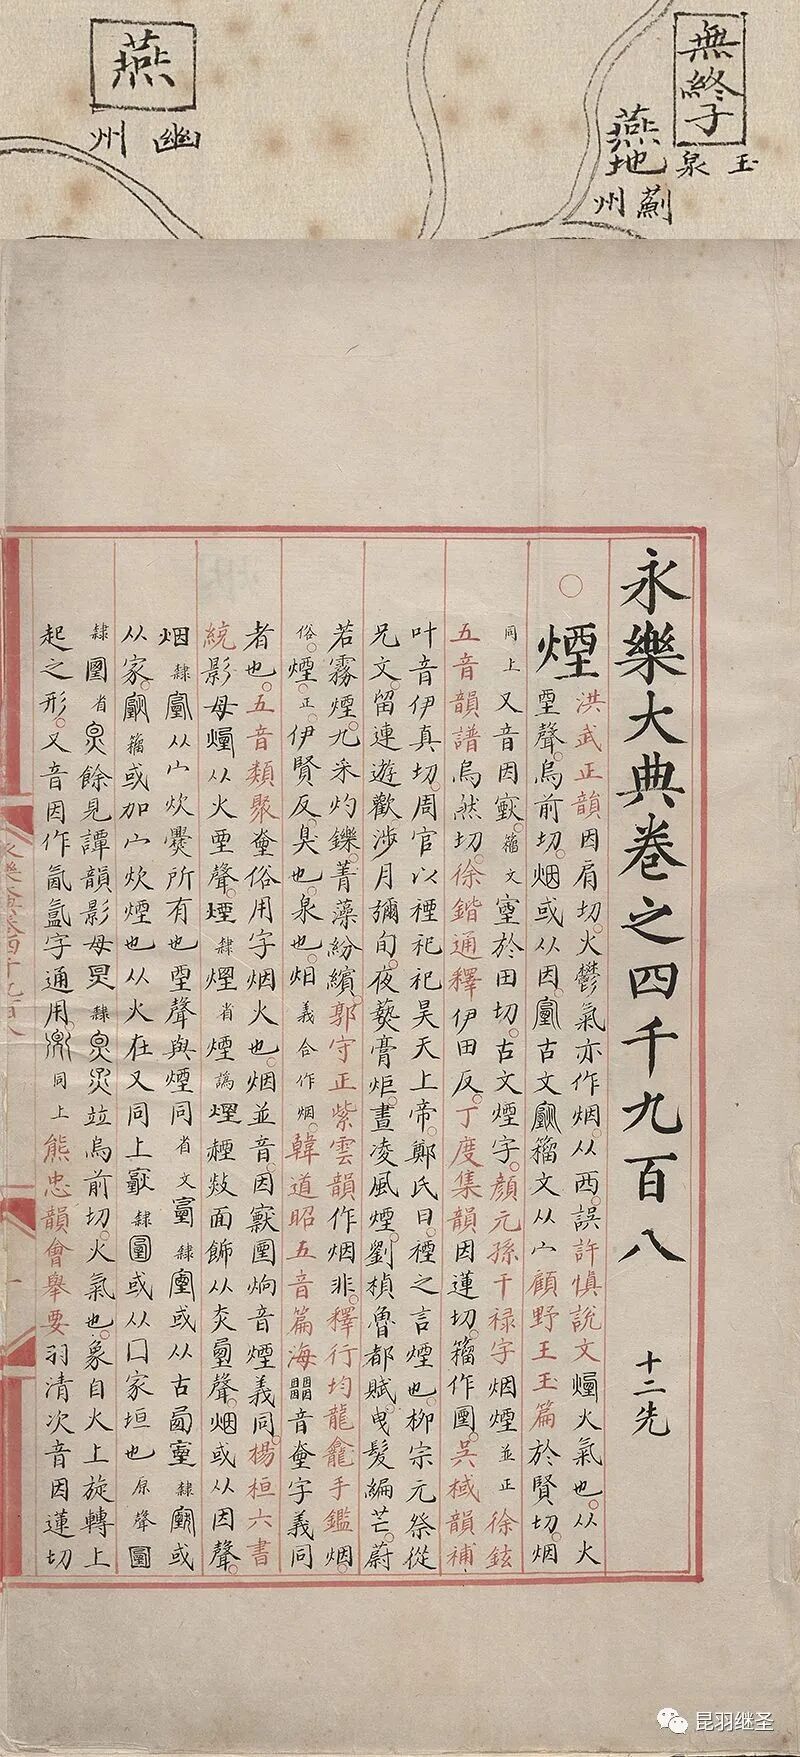 燕
幽州
無終子
玉泉
燕地
薊州
永樂大典卷之四千九百八 十二先
煙 洪武正韻因肩切火鬱氣亦作烟从西誤許慎說文煙火氣也从火
垔聲烏前切烟或从因𡨾古文𡪺籀文从宀顧野王玉篇於賢切烟
同上又音因𡪺籀文𡨾於田切古文煙字顏元孫干禄字烟煙並正徐鉉
五音韻譜烏然切徐鍇通釋伊田反丁度集韻因蓮切籀作㘣吳棫韻補
叶音伊真切周官以禋祀祀昊天上帝鄭氏曰禋之言煙也柳宗元祭從
兄文留連遊歡涉月彌旬夜爇膏炬晝凌風煙劉楨魯都賦曵髮編芒蔚
若霧煙九采灼鑠菁藻紛繽郭守正紫雲韻作烟非釋行均龍龕手鑑烟
俗煙正伊賢反臭也泉也烟義合作烟韓道昭五音篇海音字義同
者也五音類聚俗用字烟火也烟並音因音煙義同楊桓六書
統影母煙从火垔聲煙隸煙省煙譌面飾从聲烟或从因聲
烟隸从宀炊爨所有也垔聲與煙同省文隸或从古隸或
从家籀或加宀炊煙也从火在又同上隸或从囗家垣也原聲
隸省餘見譚韻影母隸並烏前切火氣也象自火上旋轉上
起之形又音因作氤氲字通用同上熊忠韻會舉要羽清次音因蓮切
永樂大典卷四千九百八
一
昆羽继圣